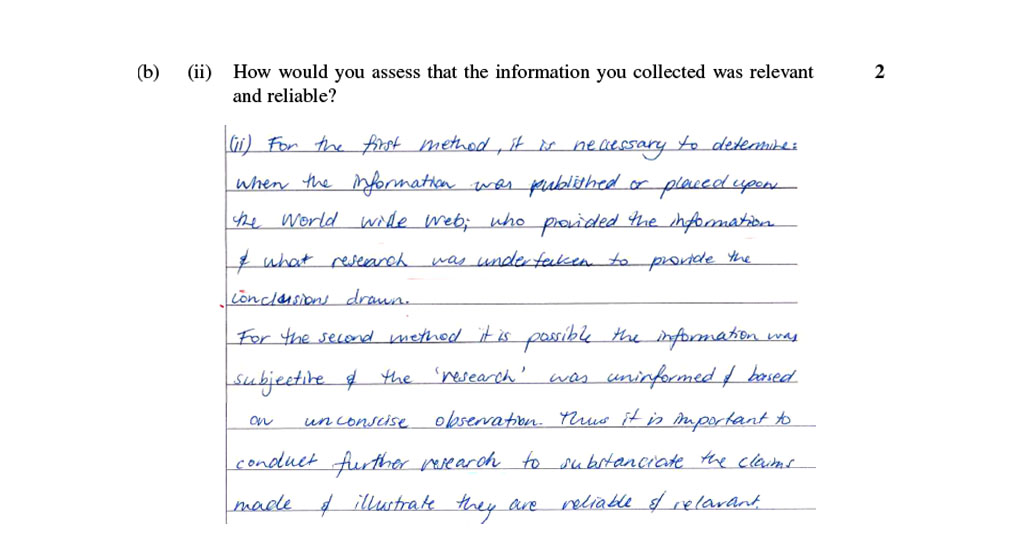 (b) (ii) How would you assess that the information you collected was relevant 2
and reliable?
(ii) For the first method, it is necessary to determine:
when the information was published or placed upon
the World wide web; who provided the information
& what research was undertaken to provide the
conclusions drawn.
For the second method it is possible the information was
subjective & the 'research' was uninformed & based
on unconscise observation. Thus it is important to
conduct further research to substanciate the claims
made & illustrate they are reliable & relavant.